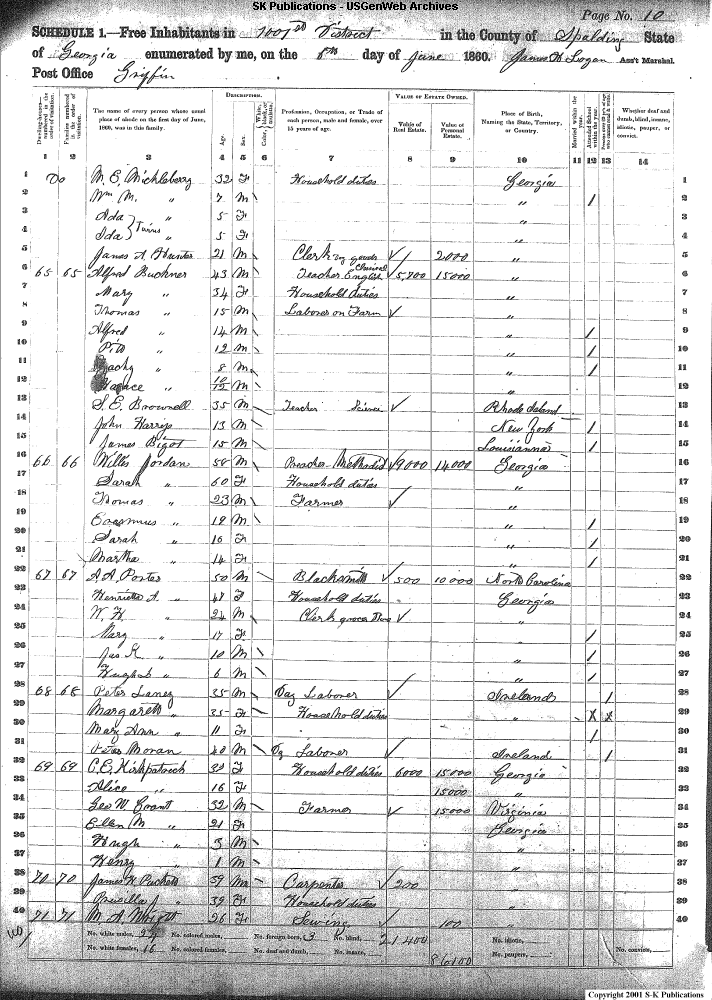 SK Publications - USGenWeb Archives
Page No. 10
SCHEDULE 1.—Free Inhabitants in 1001st District in the County of Spalding State
of Georgia enumerated by me, on the 8th day of June 1860. James H Logan Ass't Marshal.
Post Office Griffin
DESCRIPTION. VALUE OF ESTATE OWNED.
Dwelling-houses—numbered in the order of visitation. Families numbered in the order of visitation. The name of every person whose usual place of abode on the first day of June, 1860, was in this family. Age. Sex. Color, Profession, Occupation, or Trade of each person, male and female, over 15 years of age. Value of Real Estate. Value of Personal Estate. Place of Birth, Naming the State, Territory, or Country. Married within the year. Attended School within the year. Whether deaf and dumb, blind, insane, idiotic, pauper, or convict.
1 2 3 4 5 6 7 8 9 10 11 12 13 14
1 M. E. Mickleberry 32 F Household duties Georgia 1
2 Wm M. " 7 M " / 2
3 Ada } Twins " 5 F " 3
4 Ida } " 5 F " 4
5 James A. Hunter 21 M Clerk dry goods 2000 " 5
6 65 65 Alfred Buckner 43 M Teacher English Classical 5,800 15000 " 6
7 Mary " 34 F Household duties " 7
8 Thomas " 15 M Laborer on Farm " 8
9 Alfred " 14 M " / 9
10 " 12 M " / 10
11 " 8 M " / 11
12 Horace " 10/12 M " 12
13 S. E. Brownell 35 M Teacher Science Rhode Island 13
14 John Harrys 13 M New York / 14
15 James Bigot 15 M Louisianna / 15
16 66 66 Willis Jordan 58 M Preacher Methodist 9000 14000 Georgia 16
17 Sarah " 60 F Household duties " 17
18 Thomas " 23 M Farmer " 18
19 Erasmus " 19 M " / 19
20 Sarah " 16 F " / 20
21 Martha " 14 F " / 21
22 67 67 A. A. Porter 50 M Blacksmith 500 10000 North Carolina 22
23 Henrietta A. " 48 F Household duties Georgia 23
24 W. H. " 24 M Clerk grocer " 24
25 Mary " 17 F " / 25
26 Jas " 10 M " / 26
27 Hugh " 6 M " / 27
28 68 68 Peter Laney 35 M Day Laborer Ireland / 28
29 Margarett " 35 F Household duties " X X 29
30 Mary Ann " 11 F " / 30
31 Peter Moran 40 M Dy Laborer Ireland / 31
32 69 69 C. E. Kirkpatrick 39 F Household duties 6000 15000 Georgia 32
33 Alice " 16 F 15000 " 33
34 Geo W. Grant 32 M Farmer 15000 Virginia 34
35 Ellen M " 21 F Georgia 35
36 Hugh " 3 M " 36
37 Henry " 1 M " 37
38 70 70 James W. Puckett 39 M Carpenter 200 " 38
39 Priscilla J " 39 F Household duties " 39
40 71 71 M. A. 26 F Sewing 100 " 40
No. white males, 24 No. colored males, No. foreign born, 3 No. blind, 21400 No. idiotic,
No. white females, 16 No. colored females, No. deaf and dumb, No. insane, 86100 No. paupers, No. convicts,
Copyright 2001 S-K Publications